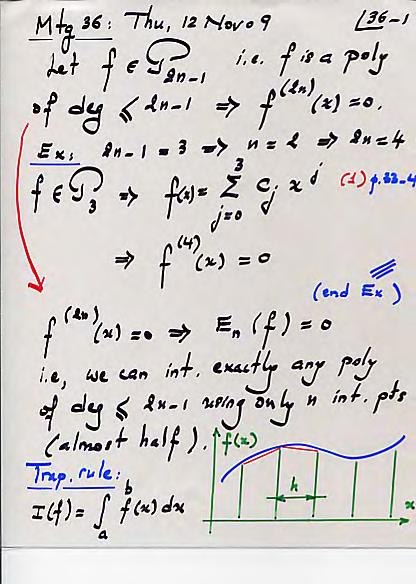 Mtg 36: Thu, 12 Nov 09 36-1
Let f ∈ P_{2n-1} i.e. f is a poly
of deg ≤ 2n-1 ⇒ f^{(2n)}(x) = 0.
Ex: 2n-1 = 3 ⇒ n = 2 ⇒ 2n = 4
f ∈ P_3 ⇒ f(x) = ∑_{j=0}^{3} c_j x^j (1) p.33-4
⇒ f^{(4)}(x) = 0
(end Ex)
f^{(2n)}(x) = 0 ⇒ E_n(f) = 0
i.e, we can int. exactly any poly
of deg ≤ 2n-1 using only n int. pts
(almost half).
f(x)
Trap. rule:
h
I(f) = ∫_a^b f(x) dx
x